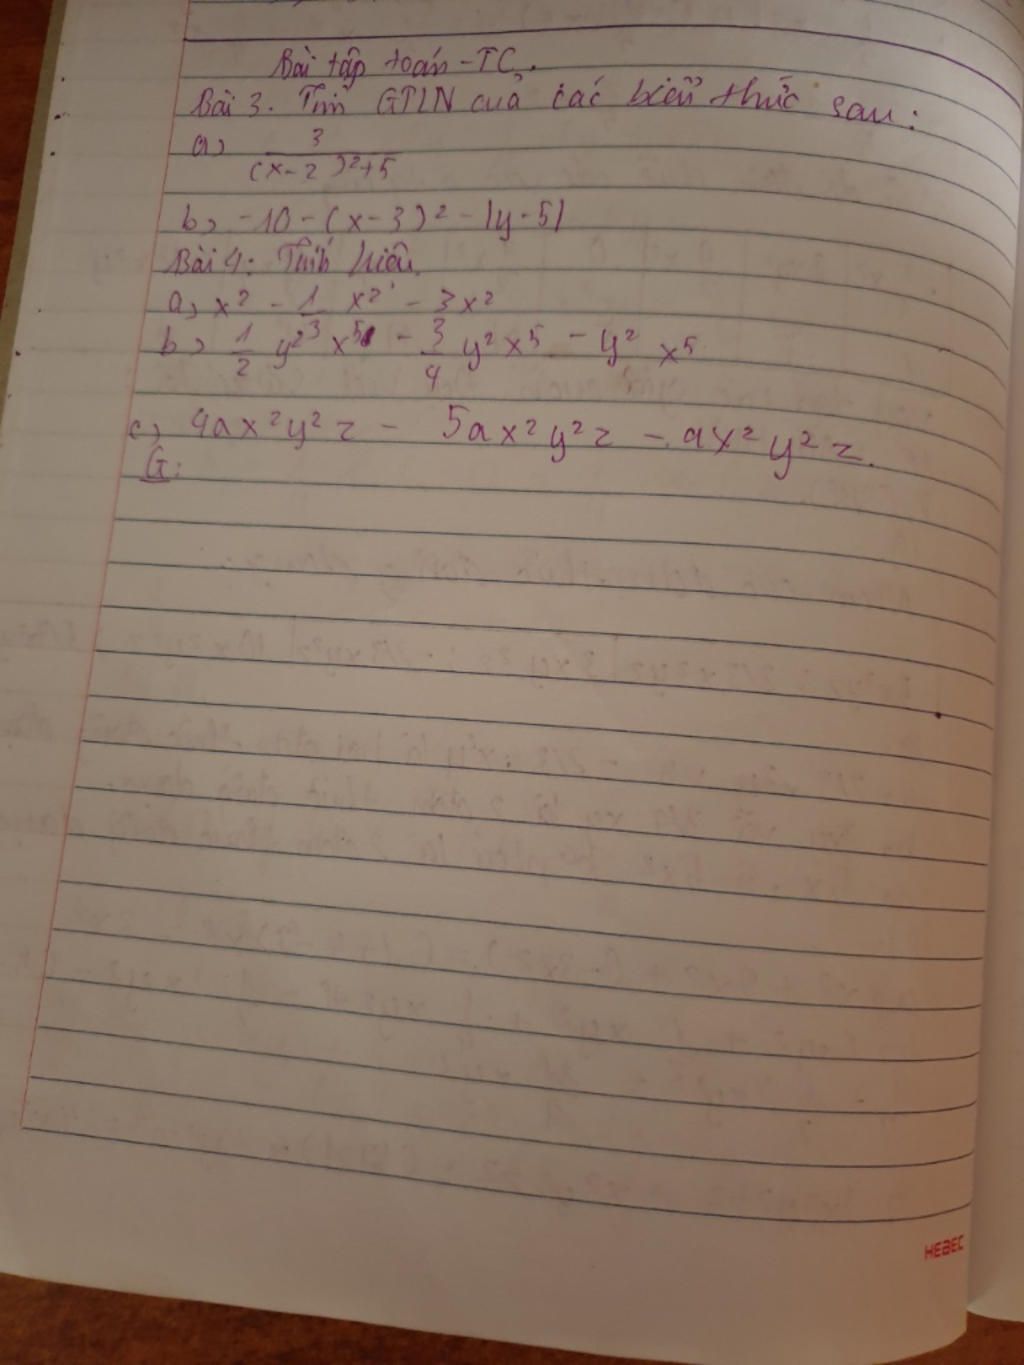 Bài tập toán - TC.
Bài 3. Tìm GTLN của các biểu thức sau:
a) 3/((x-2)²+5)
b) -10-(x-3)²-|y-5|
Bài 4: Tính hiệu.
a) x² - 1/3 x² - 3x²
b) 1/2 y² x⁵ - 3/4 y² x⁵ - y² x⁵
c) 4ax²y²z - 5ax²y²z - ax²y²z.
G:
HEBEC